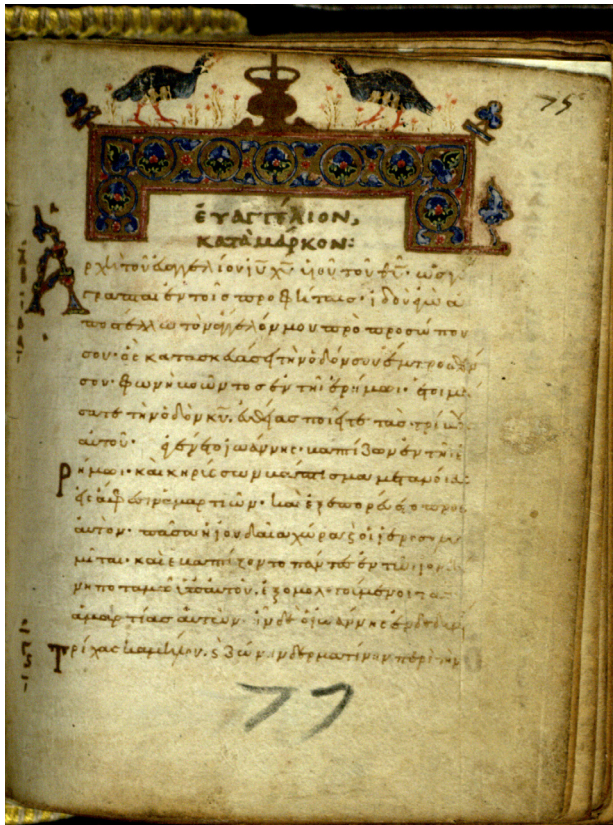 75
ΕΥΑΓΓΕΛΙΟΝ,
ΚΑΤΑ ΜΑΡΚΟΝ:
Αρχὴ τοῦ εὐαγγελίου ιῦ χῦ υἱοῦ τοῦ θῦ· ὡς γέ
γραπται ἐν τοῖς προφήταις· ἰδοὺ ἐγὼ ἀ
ποστέλλω τὸν ἄγγελόν μου πρὸ προσώπου
σου· ὃς κατασκευάσει τὴν ὁδόν σου ἔμπροσθέν
σου· φωνὴ βοῶντος ἐν τῆι ἐρήμωι· ἑτοιμά
σατε τὴν ὁδὸν κῦ· εὐθείας ποιεῖτε τὰς τρίβους
αὐτοῦ· ἐγένετο ἰωάννης βαπτίζων ἐν τῆι ἐ
ρήμωι· καὶ κηρύσσων βάπτισμα μετανοίας
εἰς ἄφεσιν ἁμαρτιῶν· καὶ ἐξεπορεύετο πρὸς
αὐτὸν πᾶσα ἡ ἰουδαία χώρα
καὶ ἐβαπτίζοντο πάντες ἐν τῶ ἰορδά
νη ποταμῶ ὑπ' αὐτοῦ, ἐξομολογούμενοι τὰς
ἁμαρτίας αὐτῶν· ἦν δὲ ὁ ἰωάννης ἐνδεδυμένος
τρίχας καμήλου· ζώνην δερματίνην περὶ τὴν
77